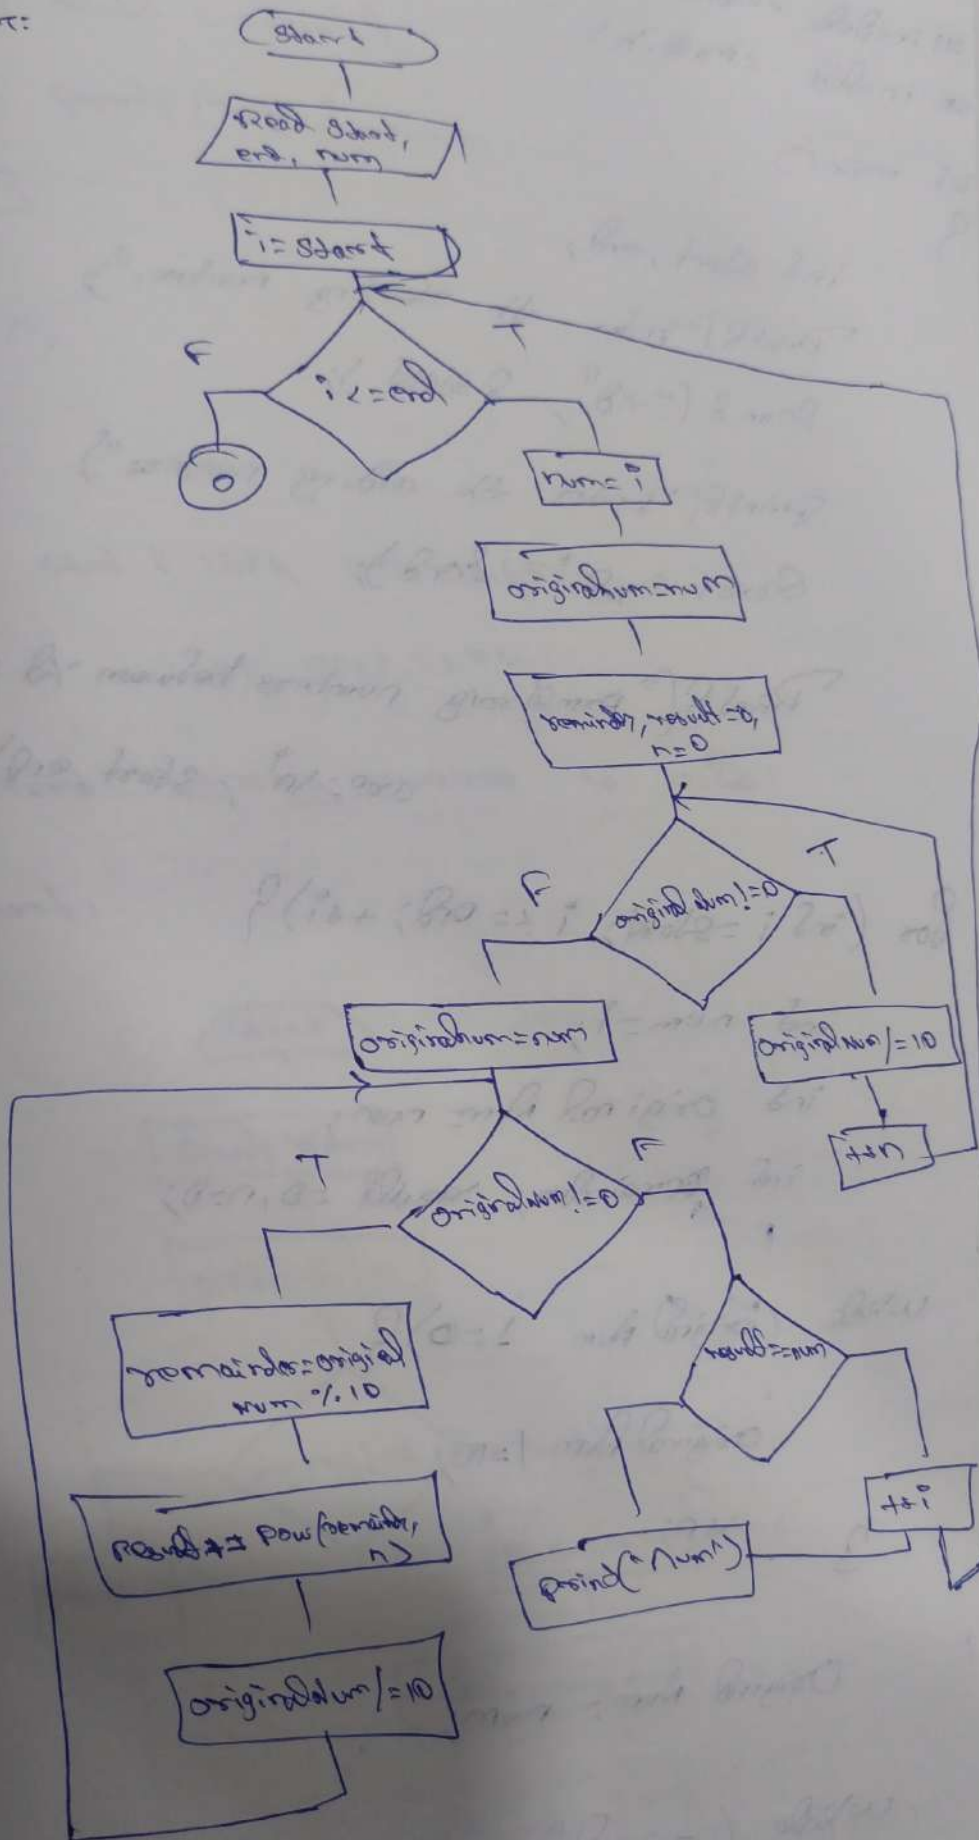 Start
Read Start,
end, num
i=start
F
T
i<=end
0
num=i
originalnum=num
remainder, result=0,
n=0
F
T
originalnum!=0
originalnum=num
originalnum/=10
++n
T
F
originalnum!=0
remainder=original
num % 10
result==num
result += pow(remainder,
n)
++i
print("num")
originalnum/=10